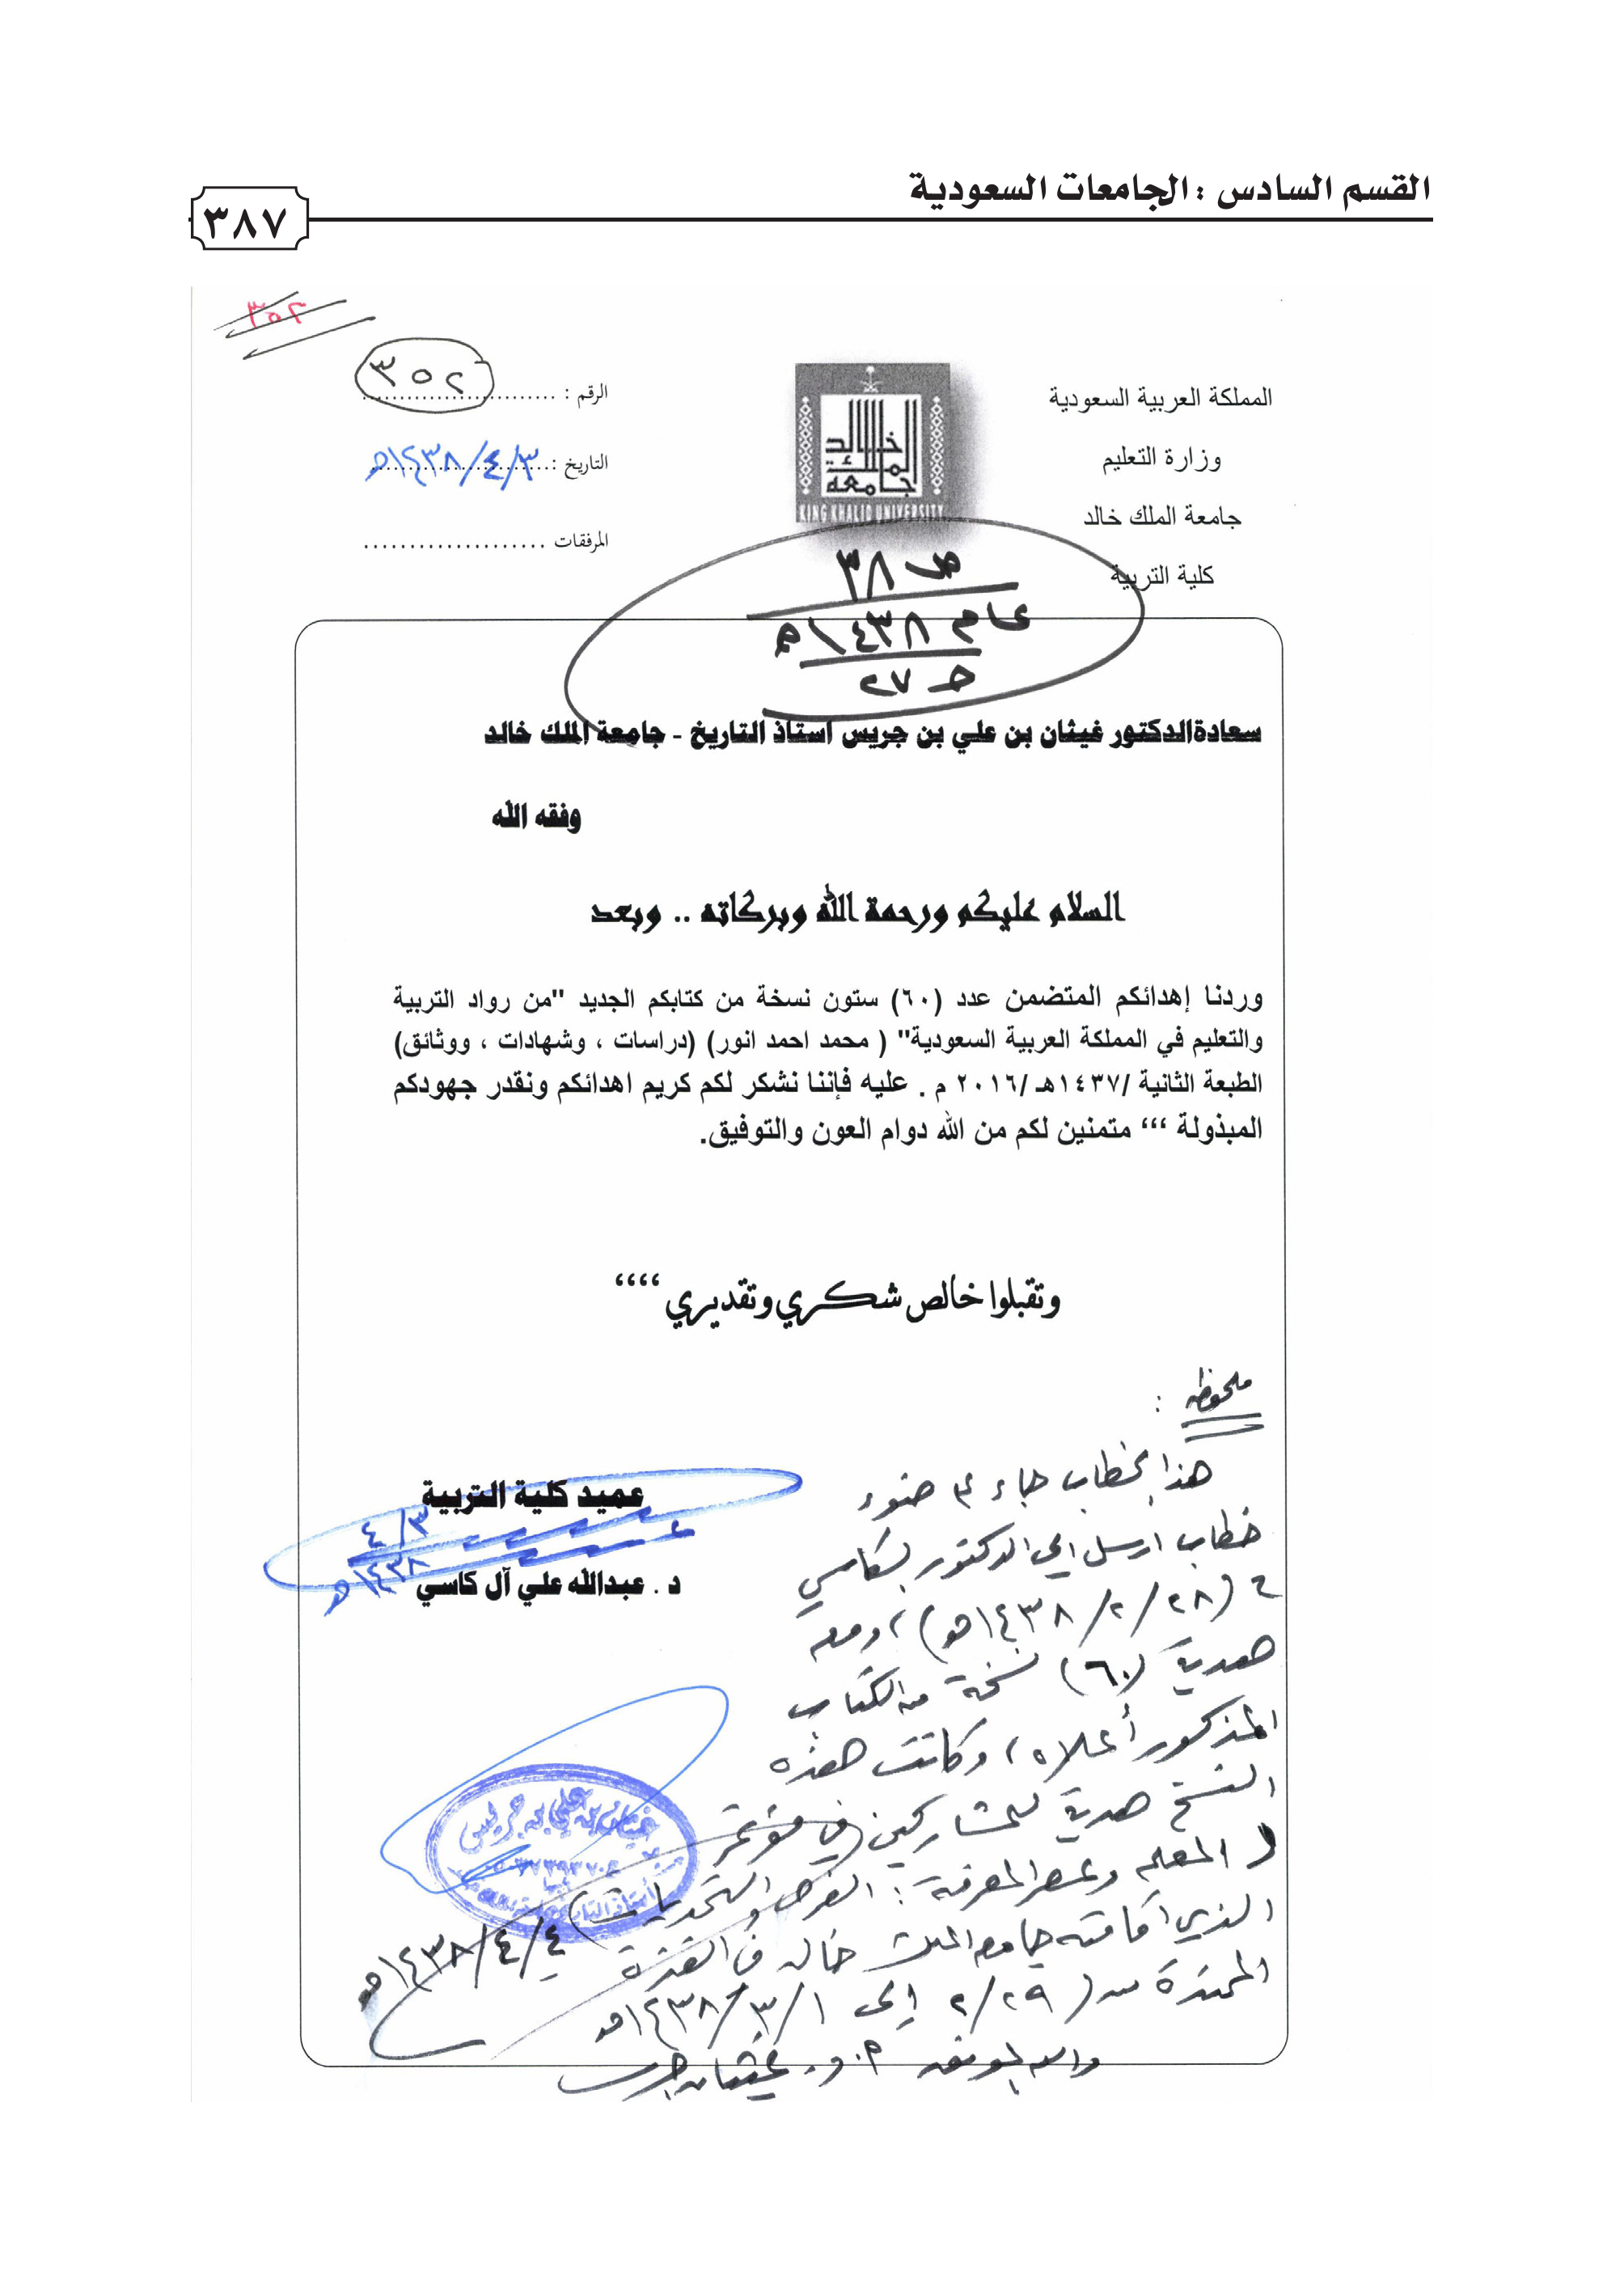 القسم السادس : الجامعات السعودية
٣٨٧
٣٥٢
المملكة العربية السعودية
وزارة التعليم
جامعة الملك خالد
كلية التربية
جامعة الملك خالد
KING KHALID UNIVERSITY
الرقم : ٣٥٢
التاريخ : ١٤٣٨/٤/٣هـ
المرفقات ....................
ص ٣٨
عام ١٤٣٨هـ
حـ ٢٧
سعادةالدكتور غيثان بن علي بن جريس استاذ التاريخ - جامعة الملك خالد
وفقه الله
السلام عليكم ورحمة الله وبركاته .. وبعد
وردنا إهدائكم المتضمن عدد (٦٠) ستون نسخة من كتابكم الجديد "من رواد التربية
والتعليم في المملكة العربية السعودية" ( محمد احمد انور) (دراسات ، وشهادات ، ووثائق)
الطبعة الثانية /١٤٣٧هـ /٢٠١٦ م . عليه فإننا نشكر لكم كريم اهدائكم ونقدر جهودكم
المبذولة ،،، متمنين لكم من الله دوام العون والتوفيق.
وتقبلوا خالص شكري وتقديري ،،،،
عميد كلية التربية
٤/٣
١٤٣٨هـ
د . عبدالله علي آل كاسي
ملحوظه :
هذا الخطاب جاء في ضوء
خطاب ارسل الى الدكتور الكاسي
في (١٤٣٨/٢/٢٨هـ) ، ومعه
هدية (٦٠) نسخة من الكتاب
المذكور أعلاه ، وكانت هذه
النسخ هدية للمشاركين في مؤتمر
( المعلم وعصر المعرفة : الفرص والتحديات )
الذي اقامته جامعة الملك خالد في الفترة
الممتدة من ( ٢/٢٩ إلى ١٤٣٨/٣/١هـ
والله الموفق أ.د. غيثان جريس
غيثان بن علي بن جريس
١٤٣٨/٤/٤هـ